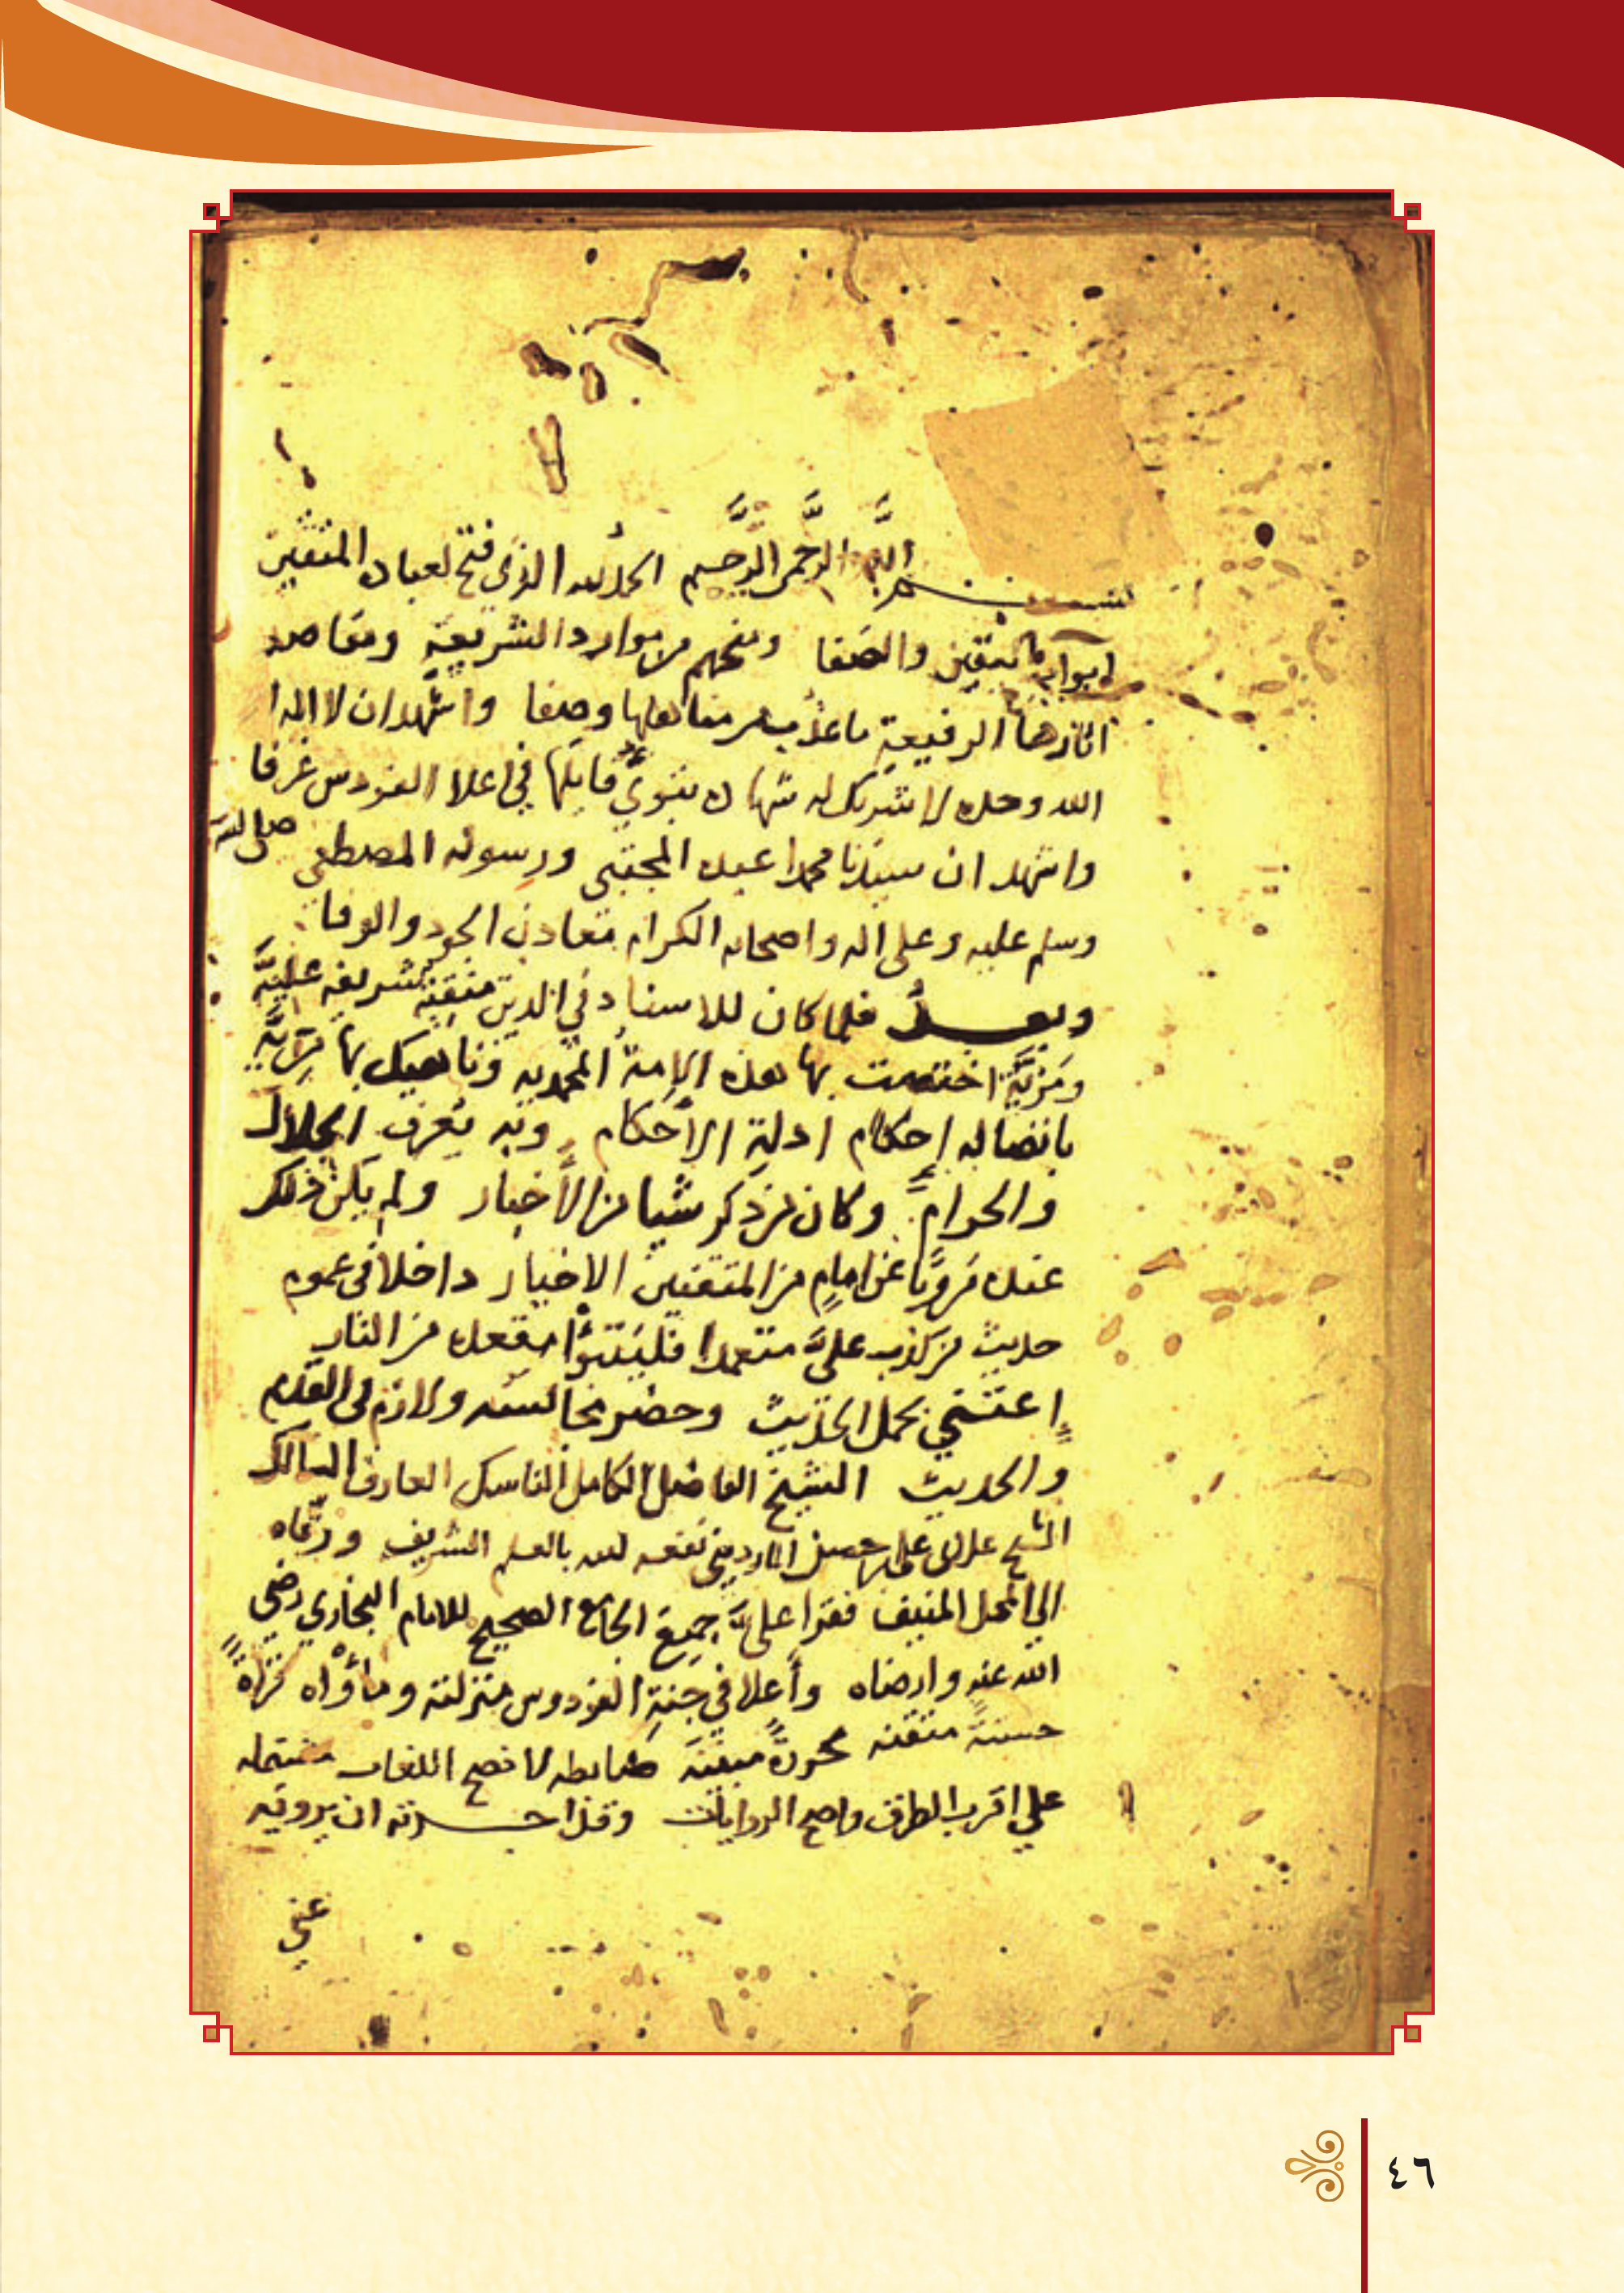 بسم الله الرحمن الرحيم الحمد لله الذي فتح لعباده المتقين
ابواب اليقين والصفا ومنحهم من موارد الشريعة ومقاصد
الرفيعة ما عذب من مناهلها وصفا واشهد ان لا اله الا
الله وحده لا شريك له شهادة قايلها في اعلا الفردوس غرفا
واشهد ان سيدنا محمدا عبده المجتبى ورسوله المصطفى صلى الله
وسلم عليه وعلى اله واصحابه الكرام معادن الجود والوفا
وبعد فلما كان للاسناد في الدين منقبة شريفة علية
ومزية اختصت بها هذه الامة المحمدية وناهيك بها مزية
باتصاله إحكام ادلة الأحكام وبه يعرف الحلال
والحرام وكان من ذكر شيا من الأخبار ولم يكن ذلك
عنده مرويا عن امام من المتقنين الاخيار داخلا في عموم
حديث من كذب علي متعمدا فليتبوأ مقعده من النار
إعتنى بحمل الحديث وحضر مجالسه ولازم في القديم
والحديث الشيخ الفاضل الكامل الناسك العارف السالك
الشيخ على المارديني نفعه الله بالعلم الشريف ورقاه
الى المحل المنيف فقرا علي جميع الجامع الصحيح للامام البخاري رضي
الله عنه وارضاه وأعلا في جنة الفردوس منزلته ومأواه قراةً
حسنة متقنه مجودة مبينة ضابطه لا فصح اللغات مشتمله
على اقرب الطرق واصح الروايات وقد اجزته ان يرويه
عني
٤٦